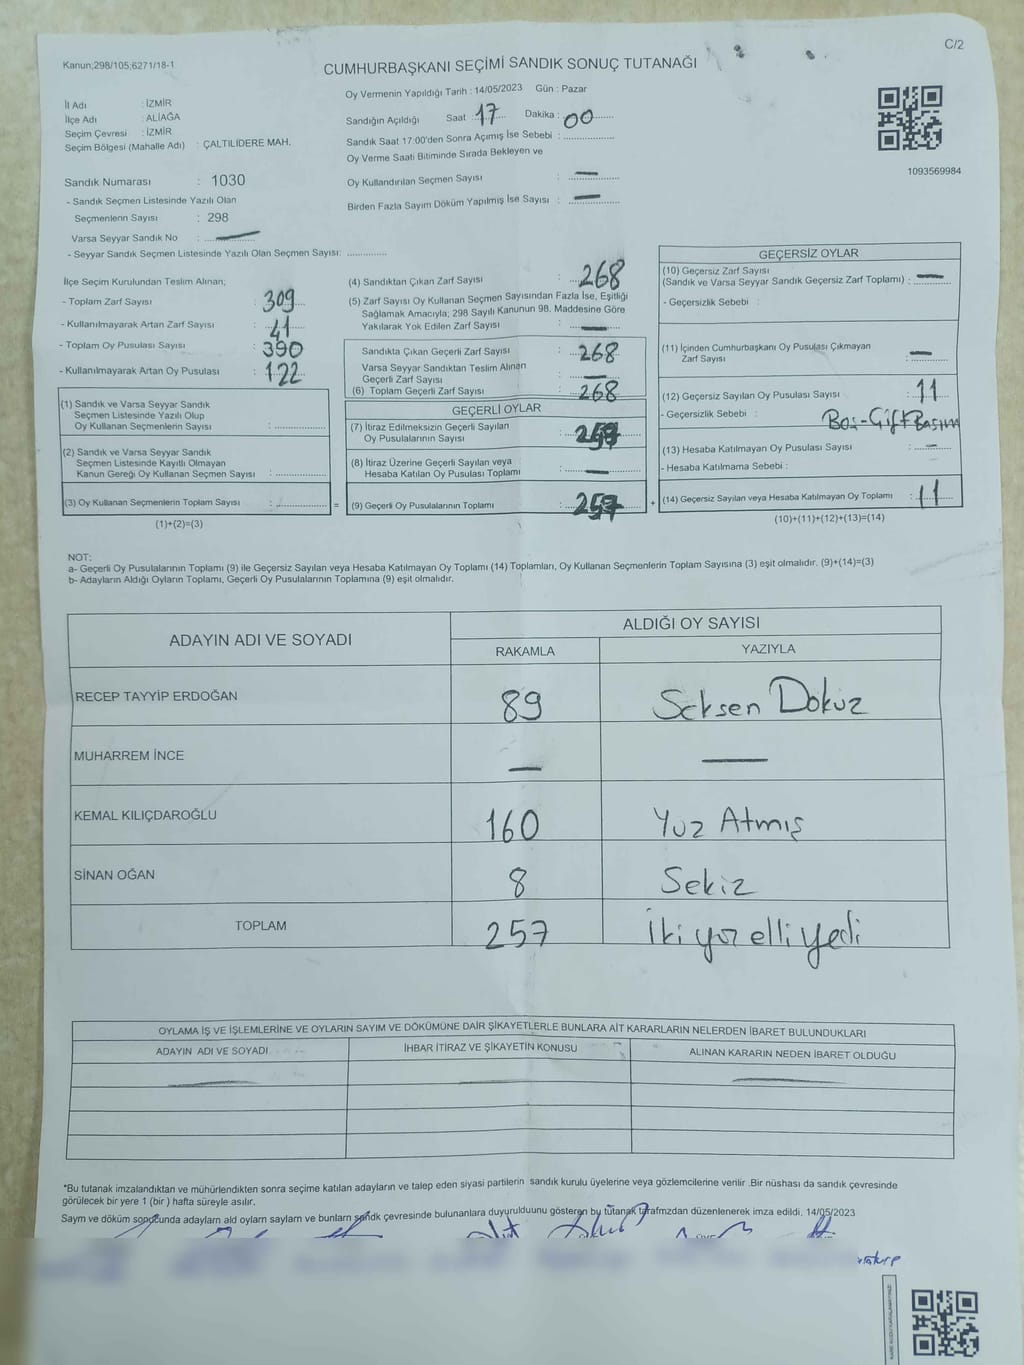 C/2
Kanun;298/105;6271/18-1
CUMHURBAŞKANI SEÇİMİ SANDIK SONUÇ TUTANAĞI
İl Adı : İZMİR
İlçe Adı : ALİAĞA
Seçim Çevresi : İZMİR
Seçim Bölgesi (Mahalle Adı) : ÇALTILIDERE MAH.
Sandık Numarası : 1030
- Sandık Seçmen Listesinde Yazılı Olan
Seçmenlerin Sayısı : 298
Varsa Seyyar Sandık No : —
- Seyyar Sandık Seçmen Listesinde Yazılı Olan Seçmen Sayısı: ..............
Oy Vermenin Yapıldığı Tarih : 14/05/2023 Gün : Pazar
Sandığın Açıldığı Saat : 17 Dakika : 00
Sandık Saat 17:00'den Sonra Açımış İse Sebebi : ..............
Oy Verme Saati Bitiminde Sırada Bekleyen ve
Oy Kullandırılan Seçmen Sayısı : —
Birden Fazla Sayım Döküm Yapılmış İse Sayısı : —
1093569984
İlçe Seçim Kurulundan Teslim Alınan;
- Toplam Zarf Sayısı : 309
- Kullanılmayarak Artan Zarf Sayısı : 41
- Toplam Oy Pusulası Sayısı : 390
- Kullanılmayarak Artan Oy Pusulası : 122
(1) Sandık ve Varsa Seyyar Sandık
Seçmen Listesinde Yazılı Olup
Oy Kullanan Seçmenlerin Sayısı : ..............
(2) Sandık ve Varsa Seyyar Sandık
Seçmen Listesinde Kayıtlı Olmayan
Kanun Gereği Oy Kullanan Seçmen Sayısı : ..............
(3) Oy Kullanan Seçmenlerin Toplam Sayısı : .............. =
(1)+(2)=(3)
(4) Sandıktan Çıkan Zarf Sayısı : 268
(5) Zarf Sayısı Oy Kullanan Seçmen Sayısından Fazla İse, Eşitliği
Sağlamak Amacıyla; 298 Sayılı Kanunun 98. Maddesine Göre
Yakılarak Yok Edilen Zarf Sayısı : —
Sandıkta Çıkan Geçerli Zarf Sayısı : 268
Varsa Seyyar Sandıktan Teslim Alınan
Geçerli Zarf Sayısı : —
(6) Toplam Geçerli Zarf Sayısı : 268
GEÇERLİ OYLAR
(7) İtiraz Edilmeksizin Geçerli Sayılan
Oy Pusulalarının Sayısı : 257
(8) İtiraz Üzerine Geçerli Sayılan veya
Hesaba Katılan Oy Pusulası Toplamı : —
(9) Geçerli Oy Pusulalarının Toplamı : 257 +
GEÇERSİZ OYLAR
(10) Geçersiz Zarf Sayısı
(Sandık ve Varsa Seyyar Sandık Geçersiz Zarf Toplamı) : —
- Geçersizlik Sebebi :
(11) İçinden Cumhurbaşkanı Oy Pusulası Çıkmayan
Zarf Sayısı : —
(12) Geçersiz Sayılan Oy Pusulası Sayısı : 11
- Geçersizlik Sebebi : Boş-Çift Basım
(13) Hesaba Katılmayan Oy Pusulası Sayısı : —
- Hesaba Katılmama Sebebi :
(14) Geçersiz Sayılan veya Hesaba Katılmayan Oy Toplamı : 11
(10)+(11)+(12)+(13)=(14)
NOT:
a- Geçerli Oy Pusulalarının Toplamı (9) ile Geçersiz Sayılan veya Hesaba Katılmayan Oy Toplamı (14) Toplamları, Oy Kullanan Seçmenlerin Toplam Sayısına (3) eşit olmalıdır. (9)+(14)=(3)
b- Adayların Aldığı Oyların Toplamı, Geçerli Oy Pusulalarının Toplamına (9) eşit olmalıdır.
ADAYIN ADI VE SOYADI
ALDIĞI OY SAYISI
RAKAMLA YAZIYLA
RECEP TAYYİP ERDOĞAN 89 Seksen Dokuz
MUHARREM İNCE — —
KEMAL KILIÇDAROĞLU 160 Yüz Atmış
SİNAN OĞAN 8 Sekiz
TOPLAM 257 İki yüz elli yedi
OYLAMA İŞ VE İŞLEMLERİNE VE OYLARIN SAYIM VE DÖKÜMÜNE DAİR ŞİKAYETLERLE BUNLARA AİT KARARLARIN NELERDEN İBARET BULUNDUKLARI
ADAYIN ADI VE SOYADI İHBAR İTİRAZ VE ŞİKAYETİN KONUSU ALINAN KARARIN NEDEN İBARET OLDUĞU
*Bu tutanak imzalandıktan ve mühürlendikten sonra seçime katılan adayların ve talep eden siyasi partilerin sandık kurulu üyelerine veya gözlemcilerine verilir .Bir nüshası da sandık çevresinde
görülecek bir yere 1 (bir ) hafta süreyle asılır.
Sayım ve döküm sonucunda adayların ald oyların sayların ve bunların sandık çevresinde bulunanlara duyurulduunu gösteren bu tutanak tarafmzdan düzenlenerek imza edildi. 14/05/2023